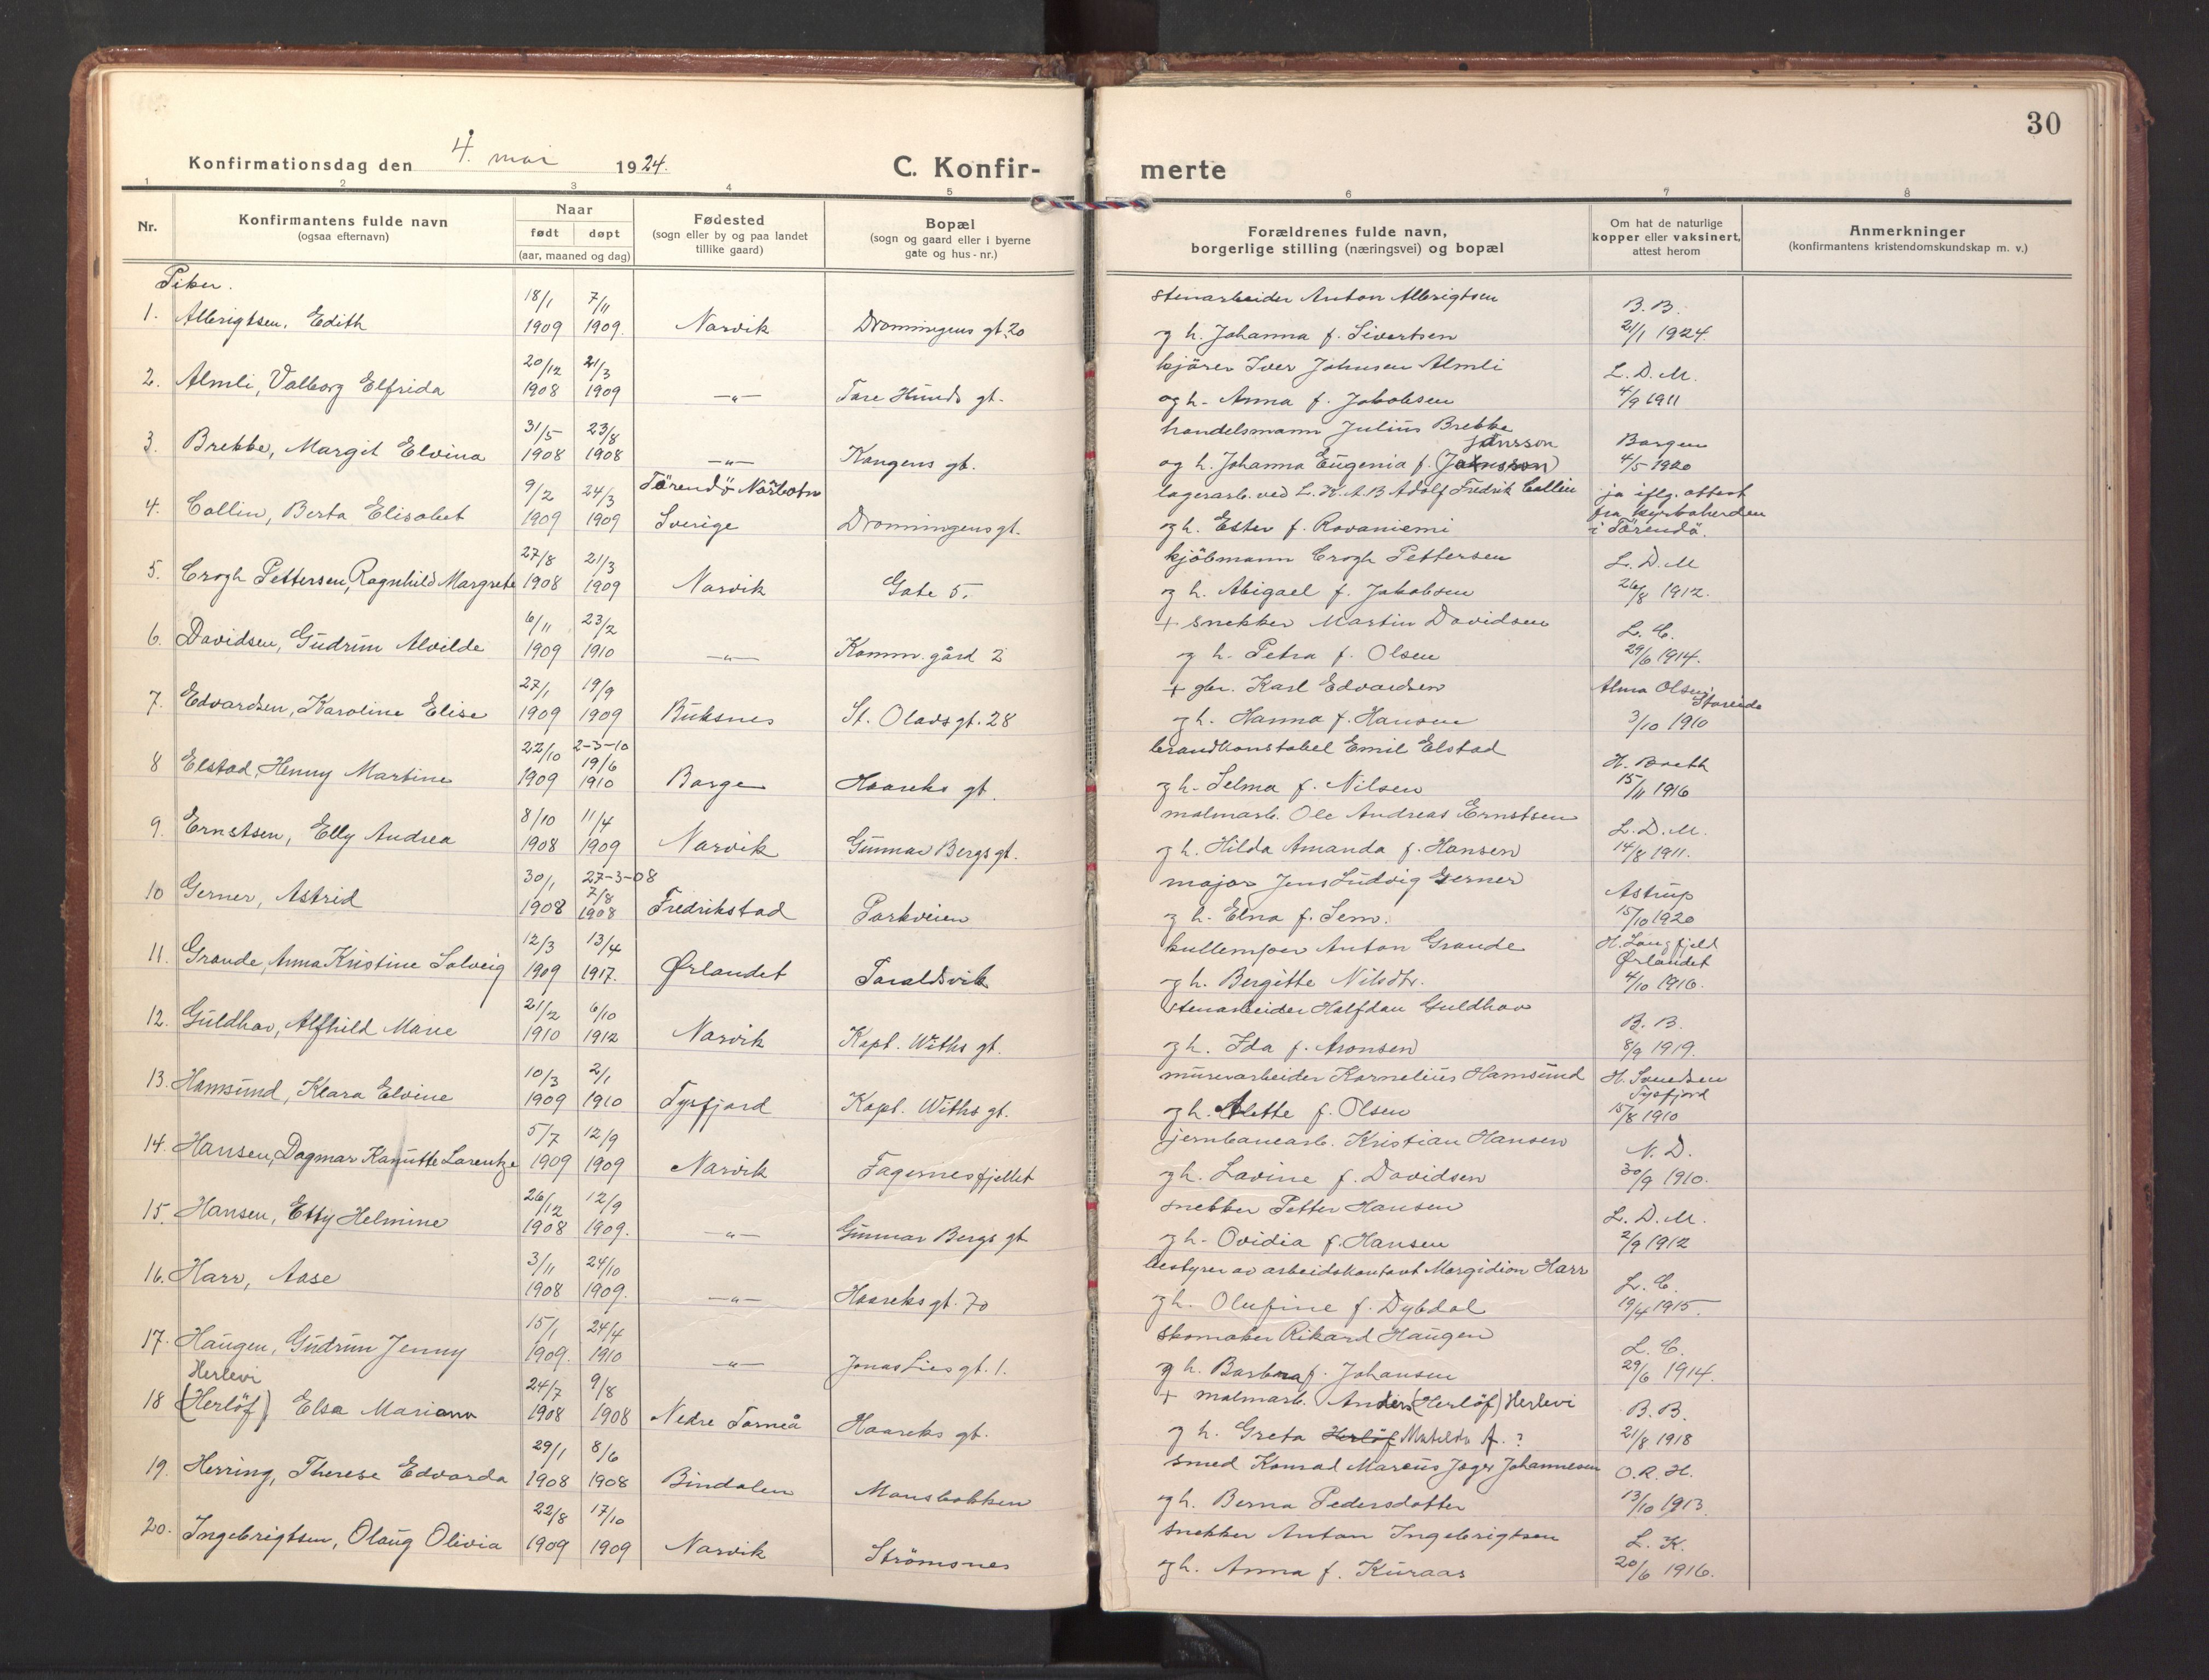 30
Konfirmationsdag den 4. mai 1924.
C. Konfir-
merte
1 2 3 4 5 6 7 8
Nr.
Konfirmantens fulde navn
(ogsaa efternavn)
Naar
født døpt
(aar, maaned og dag)
Fødested
(sogn eller by og paa landet
tillike gaard)
Bopæl
(sogn og gaard eller i byerne
gate og hus-nr.)
Forældrenes fulde navn,
borgerlige stilling (næringsvei) og bopæl
Om hat de naturlige
kopper eller vaksinert,
attest herom
Anmerkninger
(konfirmantens kristendomskundskap m. v.)
Piker.
18/1 7/11 stenarbeider Anton Albrigtsen B. B.
1. Albrigtsen, Edith 1909 1909. Narvik Dronningens gt. 20 og h. Johanna f. Sivertsen 21/1 1924.
20/12 21/3 kjører Iver Johnsen Almli L. D. M.
2. Almli, Valborg Elfrida 1908 1909 —"— Tore Hunds gt. og h. Anna f. Jakobsen 4/9 1911
31/5 23/8 handelsmann Julius Brekke Borgen
Jansson
3. Brekke, Margit Elvina 1908 1908 —"— Kongens gt. og h. Johanna Eugenia f. (Johnsson) 4/5 1920
9/2 24/3 Törendö Norbotn lagerarb. ved L. K. A. B Adolf Fredrik Collin ja iflg. attest
fra kyrkoherden
4. Collin, Berta Elisabet 1909 1909 Sverige Dronningens gt. og h. Ester f. Rovaniemi i Törendö.
27/8 21/3 kjöbmann Crogh Pettersen L. D. M
5. Crogh Pettersen, Ragnhild Margrete 1908 1909 Narvik Gate 5. og h. Abigael f. Jakobsen 26/8 1912.
6/11 23/2 + snekker Martin Davidsen L. C.
6. Davidsen, Gudrun Alvilde 1909 1910 —"— Komm. gård 2 og h. Petra f. Olsen 29/6 1914.
27/1 19/9 + gbr. Karl Edvardsen Alma Olsen
Storeide
7. Edvardsen, Karoline Elise 1909 1909 Buksnes St. Olavs gt. 28 og h. Hanna f. Hansen 3/10 1910
22/10 2-3-10 19/6 brandkonstabel Emil Elstad H. Borth
8 Elstad, Henny Martine 1909 1910 Borge Haareks gt. og h. Selma f. Nilsen 15/11 1916
8/10 11/4 malmarb. Ole Andreas Ernstsen L. D. M.
9. Ernstsen, Elly Andrea 1908 1909 Narvik Gunnar Bergs gt. og h. Hilda Amanda f. Hansen 14/8 1911.
30/1 27-3-08 7/8 major Jens Ludvig Gerner Astrup
10 Gerner, Astrid 1908 1908 Fredrikstad Parkveien og h. Elna f. Sem. 15/10 1920
12/3 13/4 kullemper Anton Grande H. Langfjeld
Ørlandet
11. Grande, Anna Kristine Solveig 1909 1917. Ørlandet Taraldsvik og h. Bergitte Nilsdtr. 4/10 1916.
21/2 6/10 stenarbeider Halfdan Guldhav B. B.
12. Guldhav, Alfhild Marie 1910 1912 Narvik Kapt. Withs gt. og h. Ida f. Aronsen 8/9 1919.
10/3 2/1 murerarbeider Kornelius Hamsund H. Svendsen
Tysfjord
13. Hamsund, Klara Elvine 1909 1910 Tysfjord Kapt. Withs gt. og h. Alette f. Olsen 15/8 1910
5/7 12/9 jernbanearb. Kristian Hansen N. D.
14. Hansen, Dagmar Kanutte Lorentze 1909 1909 Narvik Fagernesfjellet og h. Lavine f. Davidsen 30/9 1910.
26/12 12/9 snekker Petter Hansen L. D. M.
15. Hansen, Etty Helmine 1908 1909. —"— Gunnar Bergs gt og h. Ovidia f. Hansen 2/9 1912
3/11 24/10 bestyrer av arbeidskontoret Morgidion Harr L. C.
16. Harr, Aase 1908 1909. —"— Haareks gt. 70 og h. Olufine f. Dybdal 19/4 1915
15/1 24/4 skomaker Rikard Haugen L. C.
17. Haugen, Gudrun Jenny 1909. 1910 —"— Jonas Lies gt. 1. og h. Barbra f. Johansen 29/6 1914.
Herlevi 24/7 9/8 + malmarb. Anders (Herlöf) Herlevi B. B.
18 (Herlöf) Elsa Mariana 1908 1908 Nedre Torneå Haareks gt. og h. Greta Herlöf Matilda f. ? 21/8 1918
29/1 8/6 smed Konrad Marcus Jager Johannesen O. R. H.
19. Herring, Therese Edvarda 1908 1908 Bindalen Mousbakken og h. Berna Pedersdatter 13/10 1913
22/8 17/10 snekker Anton Ingebrigtsen L. K.
20. Ingebrigtsen, Olaug Olivia 1909 1909 Narvik Strömsnes og h. Anna f. Kuraas 20/6 1916.